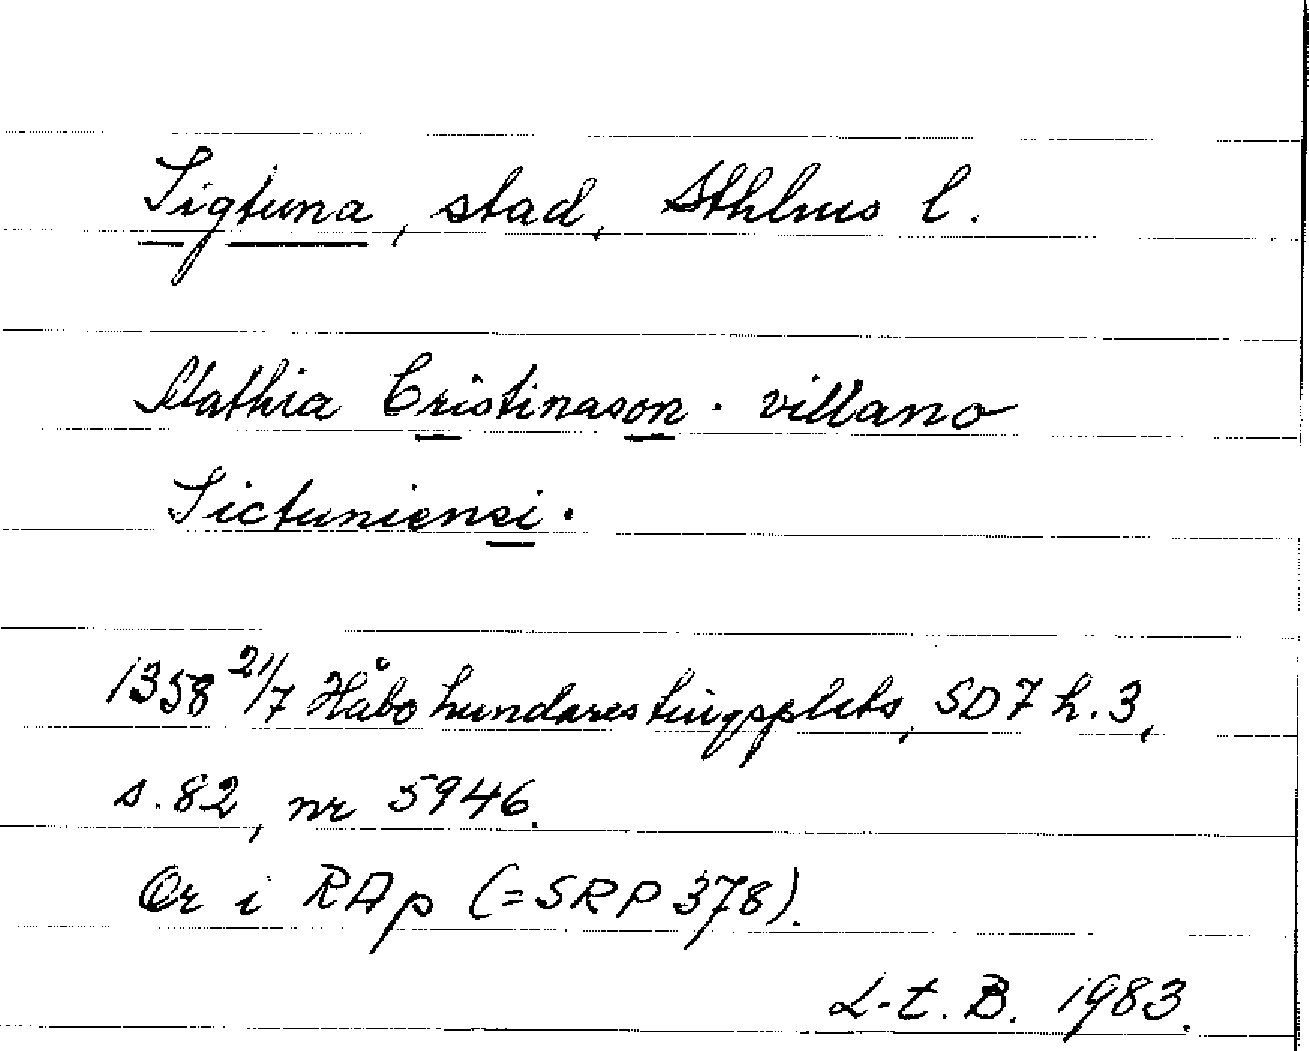 Sigtuna, stad, Sthlms l.
Mathia Cristinason · villano
Sictuniensi ·
1358 21/7 Håbo hundares tingsplats, SD 7 h. 3,
s. 82, nr 5946.
Or i RAp (=SRP 378).
L-t. B. 1983.